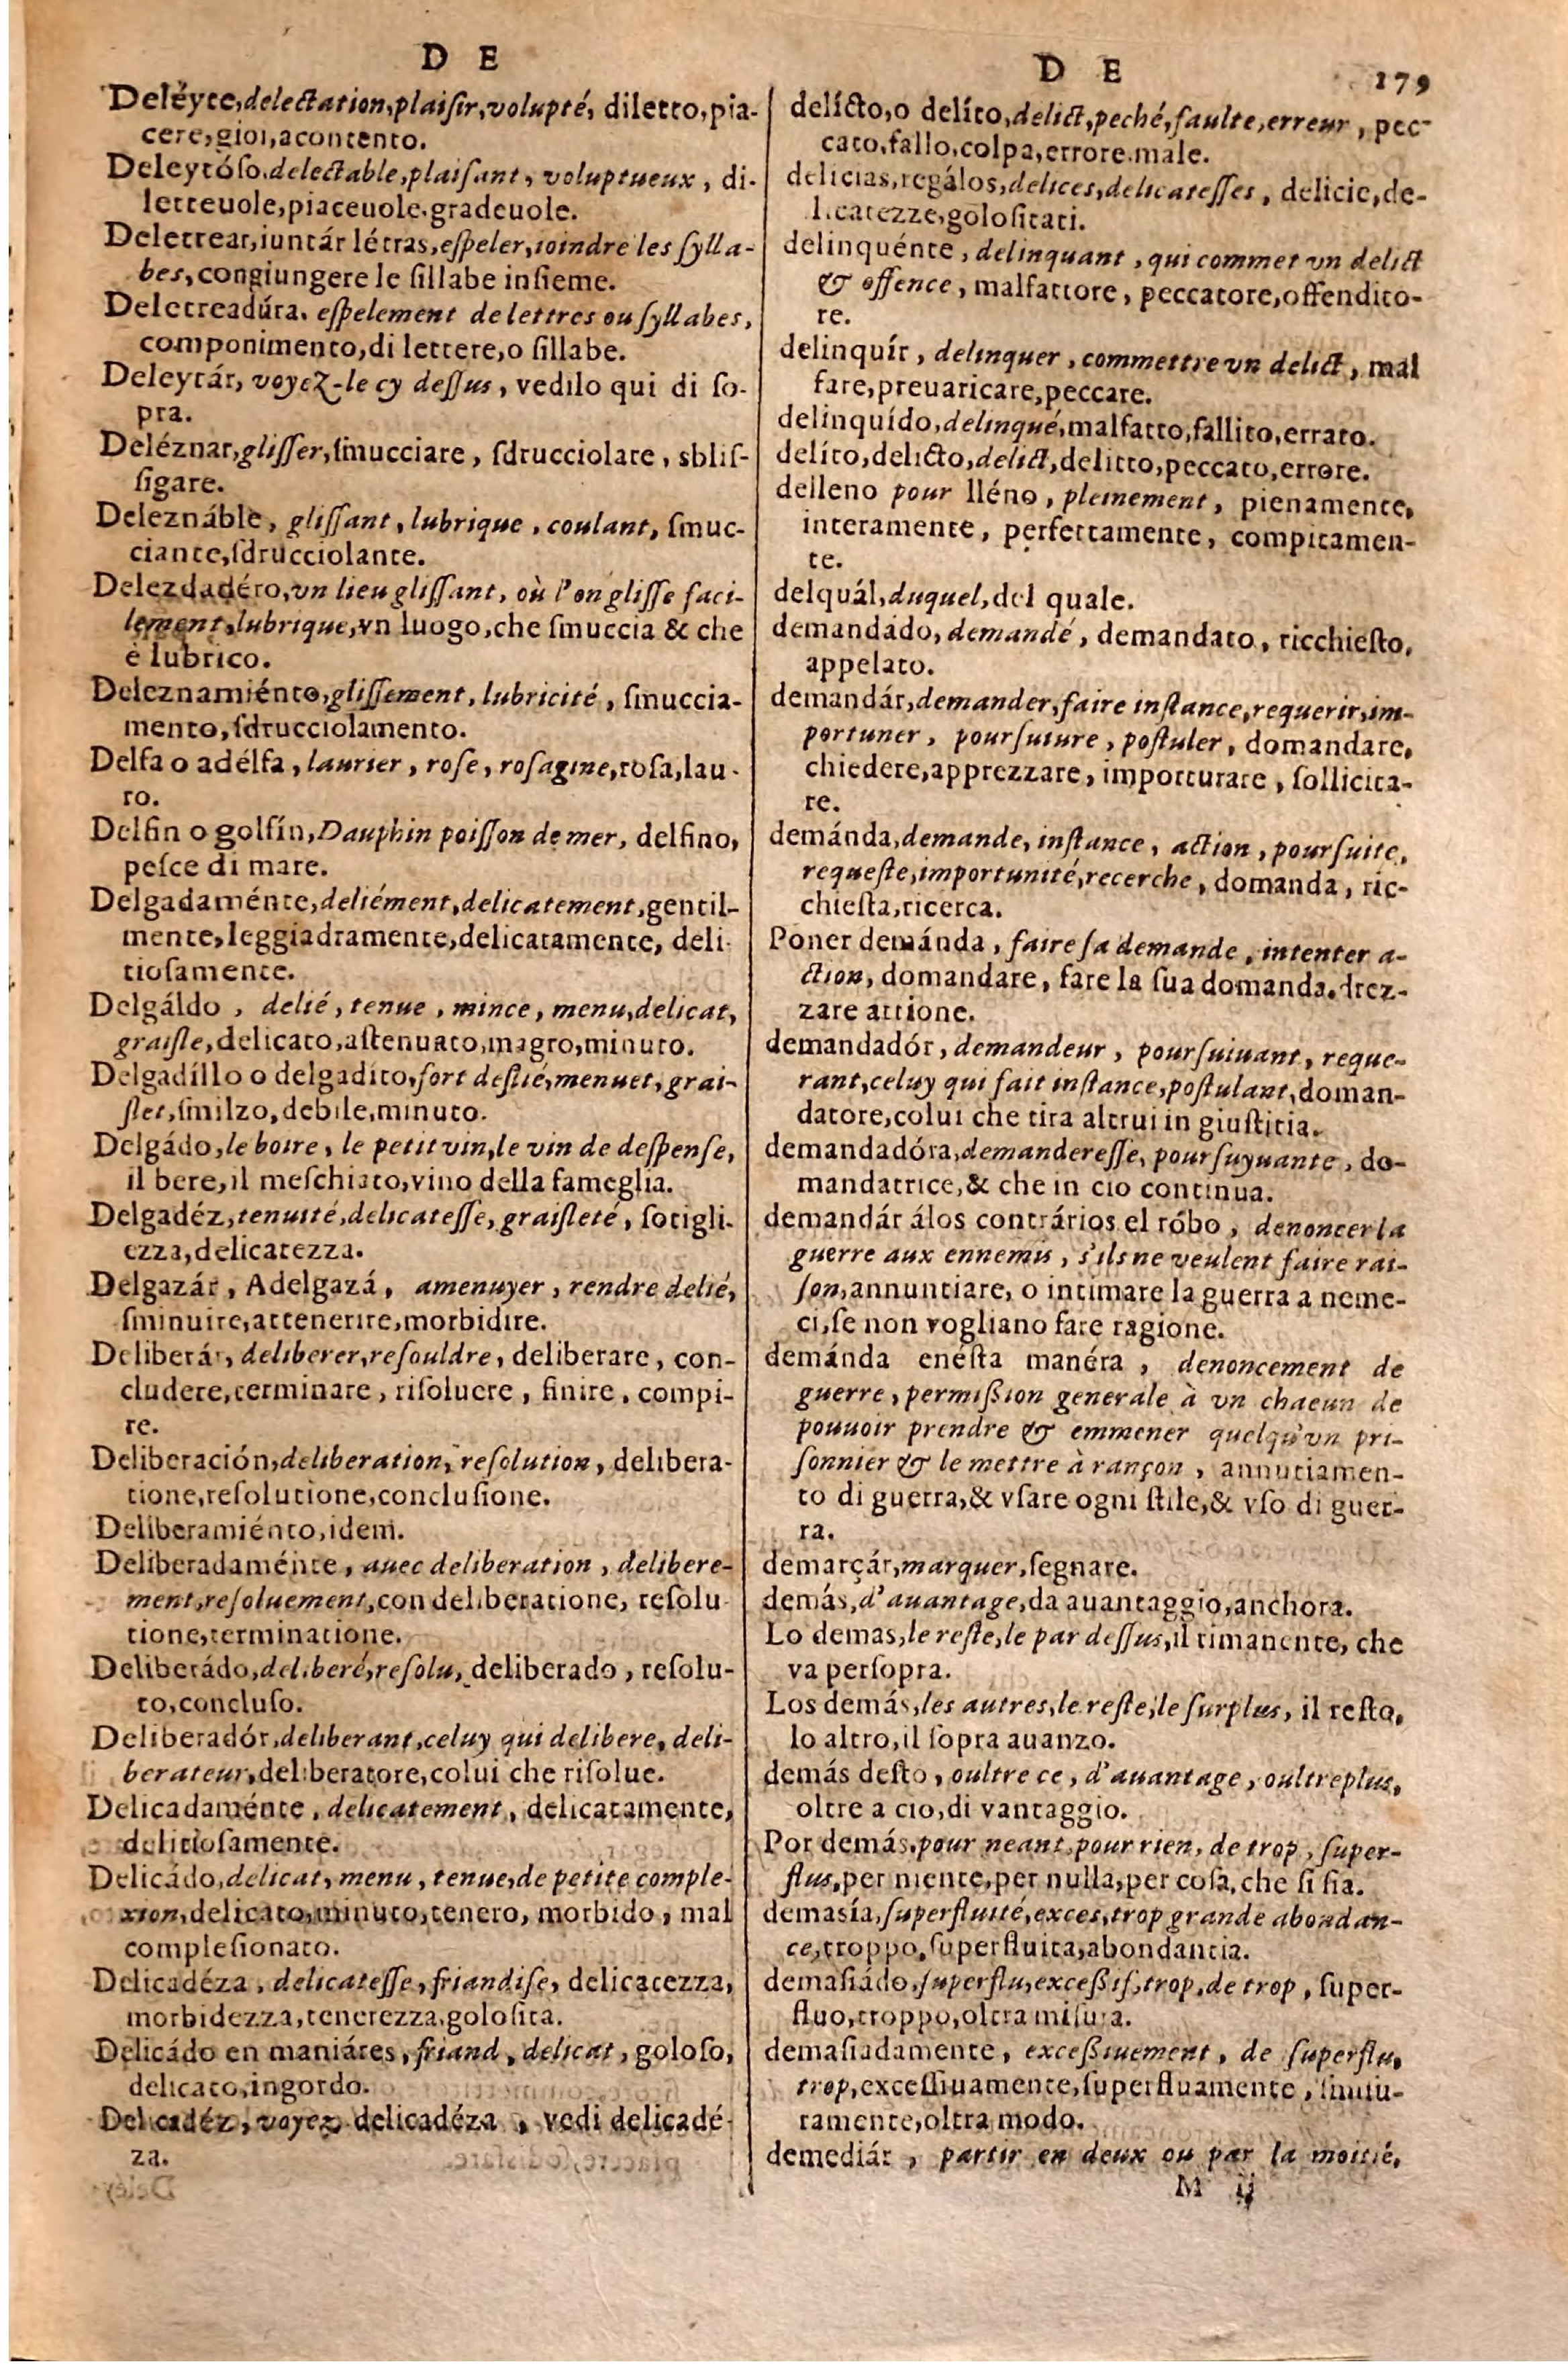 D E
Deléyte, delectation, plaisir, volupté, diletto, pia-
cere, gioi, acontento.
Deleytóſo, delectable, plaiſant, voluptueux, di-
letteuole, piaceuole, gradeuole.
Deletrear, iuntár létras, eſpeler, ioindre les ſylla-
bes, congiungere le ſillabe inſieme.
Deletreadúra, eſpelement de lettres ou ſyllabes,
componimento, di lettere, o ſillabe.
Deleytár, voyez-le cy deſſus, vedilo qui di ſo-
pra.
Deléznar, gliſſer, ſmucciare, ſdrucciolare, sbliſ-
ſigare.
Deleznáble, gliſſant, lubrique, coulant, ſmuc-
ciante, ſdrucciolante.
Delezdadéro, vn lieu gliſſant, où l'on gliſſe faci-
lement, lubrique, vn luogo, che ſmuccia & che
è lubrico.
Deleznamiénto, gliſſement, lubricité, ſmuccia-
mento, ſdrucciolamento.
Delfa o adélfa, laurier, roſe, roſagine, roſa, lau-
ro.
Delfin o golfín, Dauphin poiſſon de mer, delfino,
peſce di mare.
Delgadaménte, deliément, delicatement, gentil-
mente, leggiadramente, delicatamente, deli-
tioſamente.
Delgáldo, delié, tenue, mince, menu, delicat,
graiſle, delicato, aſtenuato, magro, minuto.
Delgadíllo o delgadito, fort deſlié, menuet, grai-
ſlet, ſmilzo, debile, minuto.
Delgádo, le boire, le petit vin, le vin de deſpenſe,
il bere, il meſchiato, vino della fameglia.
Delgadéz, tenuité, delicateſſe, graiſleté, ſotigli-
ezza, delicatezza.
Delgazár, Adelgazá, amenuyer, rendre delié,
ſminuire, attenerire, morbidire.
Deliberár, deliberer, reſouldre, deliberare, con-
cludere, terminare, riſoluere, finire, compi-
re.
Deliberación, deliberation, reſolution, delibera-
tione, reſolutione, concluſione.
Deliberamiénto, idem.
Deliberadaménte, auec deliberation, delibere-
ment, reſoluement, con deliberatione, reſolu
tione, terminatione.
Deliberádo, deliberé, reſolu, deliberado, reſolu-
to, concluſo.
Deliberadór, deliberant, celuy qui delibere, deli-
berateur, deliberatore, colui che riſolue.
Delicadaménte, delicatement, delicatamente,
delitioſamente.
Delicádo, delicat, menu, tenue, de petite comple-
xion, delicato, minuto, tenero, morbido, mal
compleſionato.
Delicadéza, delicateſſe, friandiſe, delicatezza,
morbidezza, tenerezza, goloſita.
Delicádo en maniáres, friand, delicat, goloſo,
delicato, ingordo.
Delicadéz, voyez delicadéza, vedi delicadé-
za.
D E 179
delícto, o delíto, delict, peché, faulte, erreur, pec-
cato, fallo, colpa, errore, male.
delicias, regálos, delices, delicateſſes, delicie, de-
licatezze, goloſitati.
delinquénte, delinquant, qui commet vn delict
& offence, malfattore, peccatore, offendito-
re.
delinquír, delinquer, commettre vn delict, mal
fare, preuaricare, peccare.
delinquído, delinqué, malfatto, fallito, errato.
delíto, delicto, delict, delitto, peccato, errore.
delleno pour lléno, pleinement, pienamente,
interamente, perfettamente, compitamen-
te.
delquál, duquel, del quale.
demandádo, demandé, demandato, ricchieſto,
appelato.
demandár, demander, faire inſtance, requerir, im-
portuner, pourſuiure, poſtuler, domandare,
chiedere, apprezzare, importurare, ſollicita-
re.
demánda, demande, inſtance, action, pourſuite,
requeſte, importunité, recerche, domanda, ric-
chieſta, ricerca.
Poner demánda, faire ſa demande, intenter a-
ction, domandare, fare la ſua domanda, drez-
zare attione.
demandadór, demandeur, pourſuiuant, reque-
rant, celuy qui fait inſtance, poſtulant, doman-
datore, colui che tira altrui in giuſtitia.
demandadóra, demandereſſe, pourſuyuante, do-
mandatrice, & che in cio continua.
demandár álos contrários el róbo, denoncer la
guerre aux ennemis, s'ils ne veulent faire rai-
ſon, annuntiare, o intimare la guerra a neme-
ci, ſe non vogliano fare ragione.
demánda enéſta manéra, denoncement de
guerre, permiſsion generale à vn chaeun de
pouuoir prendre & emmener quelqu'vn pri-
ſonnier & le mettre à rançon, annutiamen-
to di guerra, & vſare ogni ſtile, & vſo di guer-
ra.
demarçár, marquer, ſegnare.
demás, d'auantage, da auantaggio, anchora.
Lo demas, le reſte, le par deſſus, il rimanente, che
va perſopra.
Los demás, les autres, le reſte, le ſurplus, il reſto,
lo altro, il ſopra auanzo.
demás deſto, oultre ce, d'auantage, oultreplus,
oltre a cio, di vantaggio.
Por demás, pour neant, pour rien, de trop, ſuper-
flus, per niente, per nulla, per coſa, che ſi ſia.
demasía, ſuperfluité, exces, trop grande abondan-
ce, troppo, ſuperfluita, abondantia.
demaſiádo, ſuperflu, exceſsif, trop, de trop, ſuper-
fluo, troppo, oltra miſura.
demaſiadamente, exceſsiuement, de ſuperflu,
trop, exceſſiuamente, ſuperfluamente, ſmiſu-
ramente, oltra modo.
demediár, partir en deux ou par la moitié,
M ij